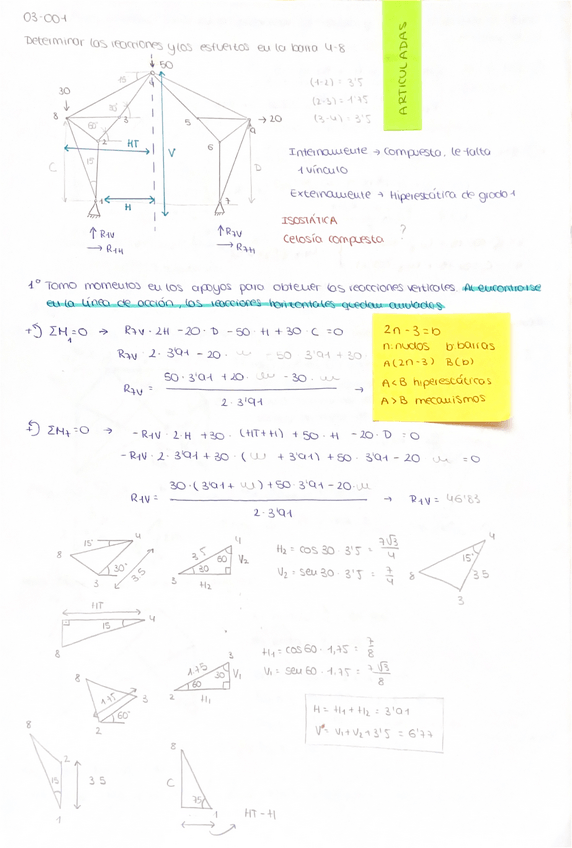 03-001
Determinar las reacciones y los esfuerzos en la barra 4-8
ARTICULADAS
50
15
30
(1-2) = 3'5
(2-3) = 1'75
(3-4) = 3'5
8
3
5
→ 20
9
60
2
HT
6
V
C
15
D
H
1
7
↑ R1V
→ R1H
↑ R7V
→ R7H
Internamente → compuesta, le falta
1 vínculo
Externamente → Hiperestática de grado 1
ISOSTÁTICA
Celosía compuesta ?
1º Tomo momentos en los apoyos para obtener las reacciones verticales. Al encontrarse
en la línea de acción, las reacciones horizontales quedan anuladas.
+) ΣM1=0 → R7V · 2H - 20 · D - 50 · H + 30 · C = 0
R7V · 2 · 3'91 - 20 · - 50 · 3'91 + 30 ·
R7V = 50 · 3'91 + 20 · - 30 · →
2 · 3'91
2n - 3 = b
n: nudos b: barras
A(2n-3) B(b)
A<B hiperestáticos
A>B mecanismos
+) ΣM7=0 → -R1V · 2 · H + 30 · (HT+H) + 50 · H - 20 · D = 0
-R1V · 2 · 3'91 + 30 · ( + 3'91) + 50 · 3'91 - 20 = 0
R1V = 30 · (3'91 + ) + 50 · 3'91 - 20 · → R1V = 46'83
2 · 3'91
15 4
8
3 30° 3.5
3.5 60 4
V2
3 30
H2
H2 = cos 30 · 3'5 = 7√3/4
V2 = sen 30 · 3'5 = 7/4
4
15
8 3.5
3
HT
15 4
8
H1 = cos 60 · 1,75 = 7/8
V1 = sen 60 · 1.75 = 7√3/8
8
1.75 3
60°
2
1.75 30 3
V1
60
2 H1
H = H1 + H2 = 3'91
V = V1 + V2 + 3'5 = 6'77
8
2
15 3.5
1
8
C
75
1
HT - H